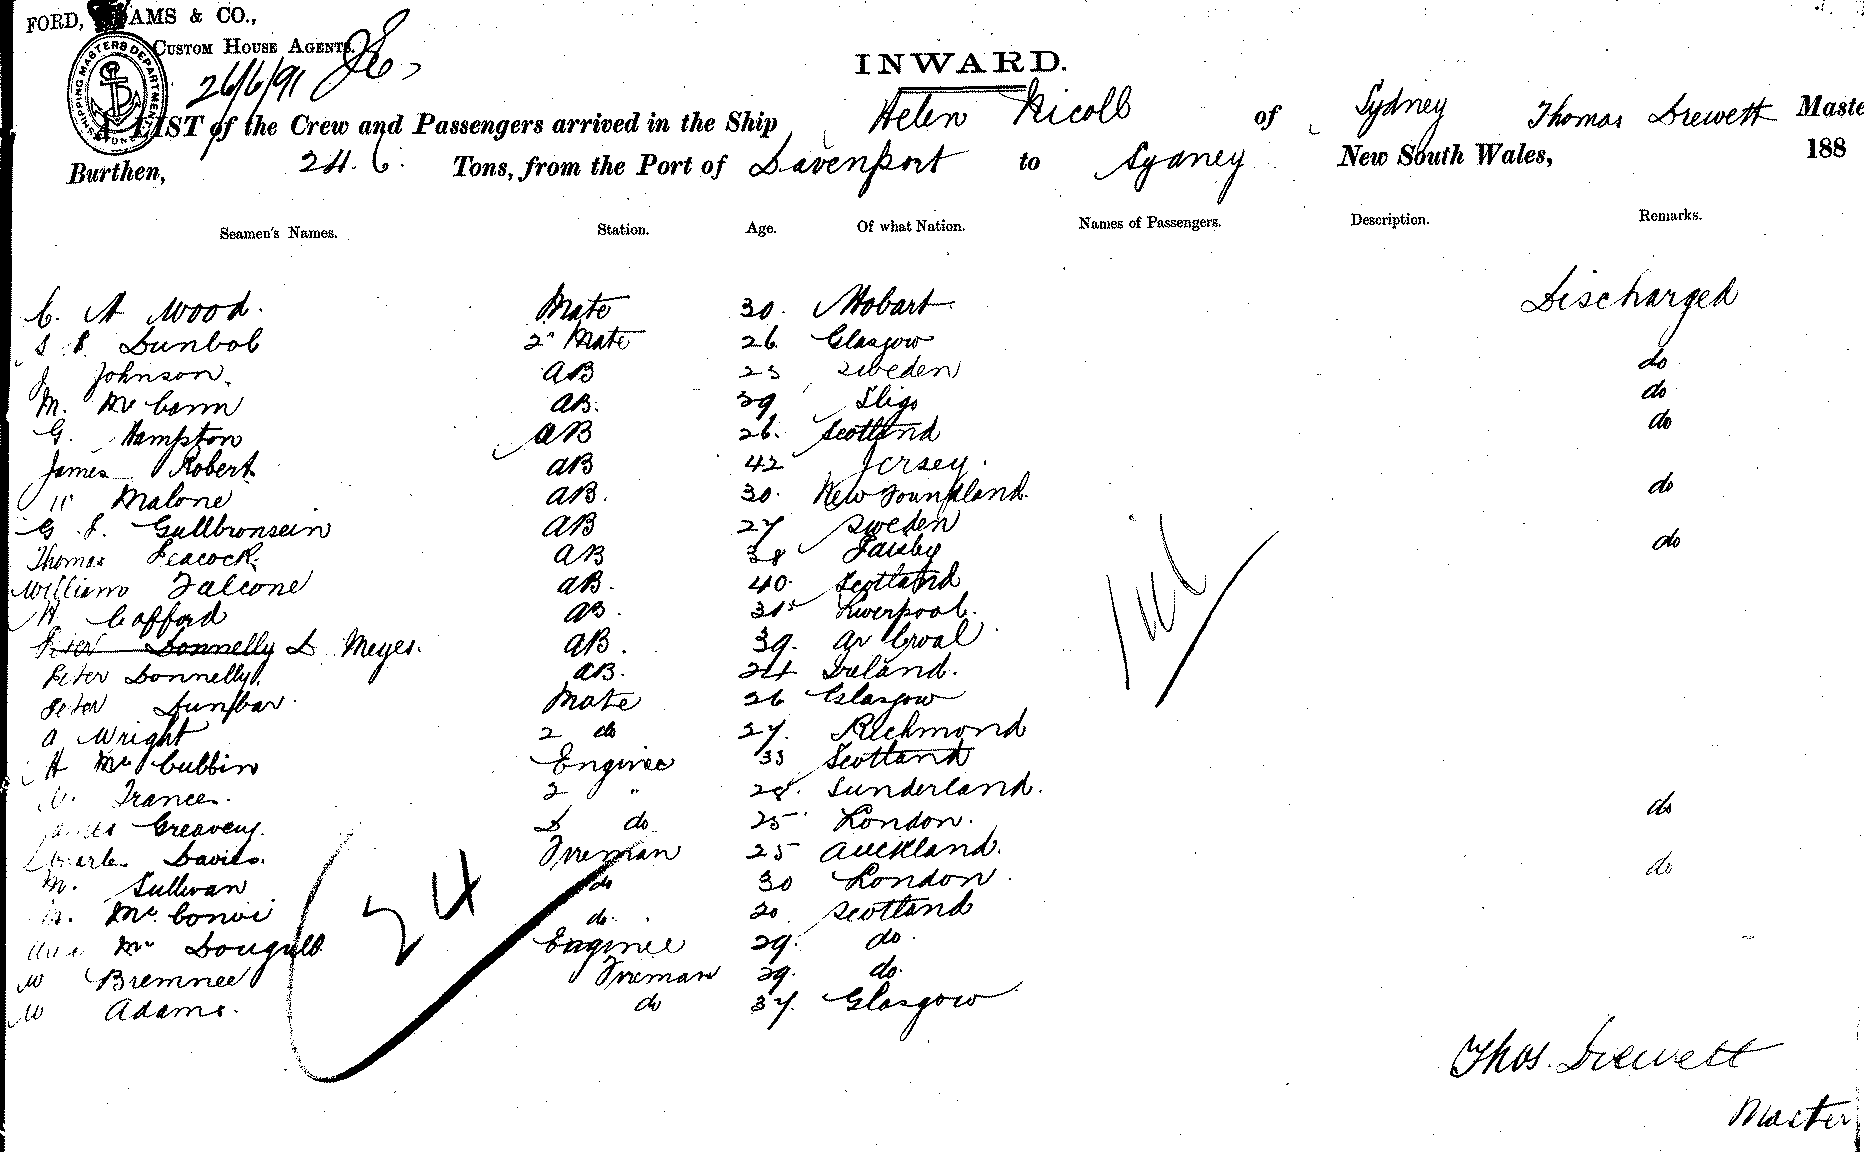 FORD, ADAMS & CO.,
CUSTOM HOUSE AGENTS.
SHIPPING MASTERS DEPARTMENT SYDNEY
26/6/91
INWARD.
A LIST of the Crew and Passengers arrived in the Ship Helen Nicoll of Sydney Thomas Drewett Maste
Burthen, 246. Tons, from the Port of Davenport to Sydney New South Wales, 188
Seamen's Names. Station. Age. Of what Nation. Names of Passengers. Description. Remarks.
C. A Wood. Mate 30. Hobart Discharged
Dunbob 2" Mate 26 Glasgow
J Johnson. AB Sweden do
M. Mc Cann AB. 39 Sligo do
G. Hampton AB 26. Scotland do
James Robert AB 42 Jersey.
" Malone AB. 30. New Foundland. do
G. Gullbronsein AB 27 Sweden
Thomas Peacock. AB 38 do
William Falcone AB. 40. Scotland
H Cafford AB. Liverpool.
Peter Donnelly D Meyes. AB. 39.
Peter Donnelly. AB. 24 Ireland.
Peter Dunbar. Mate 26 Glasgow
A Wright 2 do 27. Richmond
H Mc Cubbin Enginee 33 Scotland
Frances. 2 " 28. Sunderland.
James Greaveny. 3 do 25 London. do
Charles Davies. Fireman 25 Auckland.
M. Sullivan do 30 London. do
Mc Convi do. 20 Scotland
Mc Dougall Enginee 29. do.
W Bremnee Fireman 29. do.
W Adams. do 37. Glasgow
24
Nil
Thos. Drewett
Master